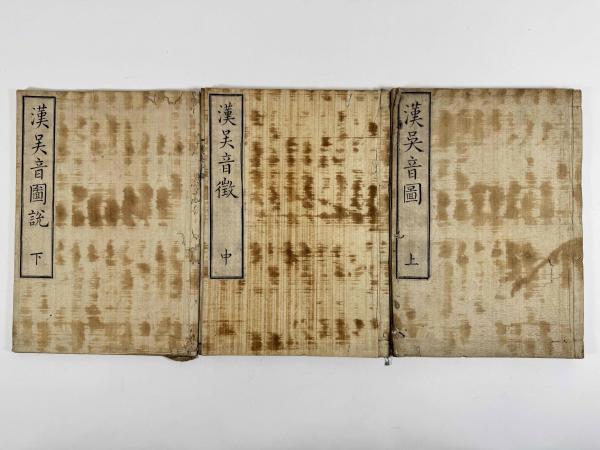 漢吳音圖 上
漢吳音徵 中
漢吳音圖說 下